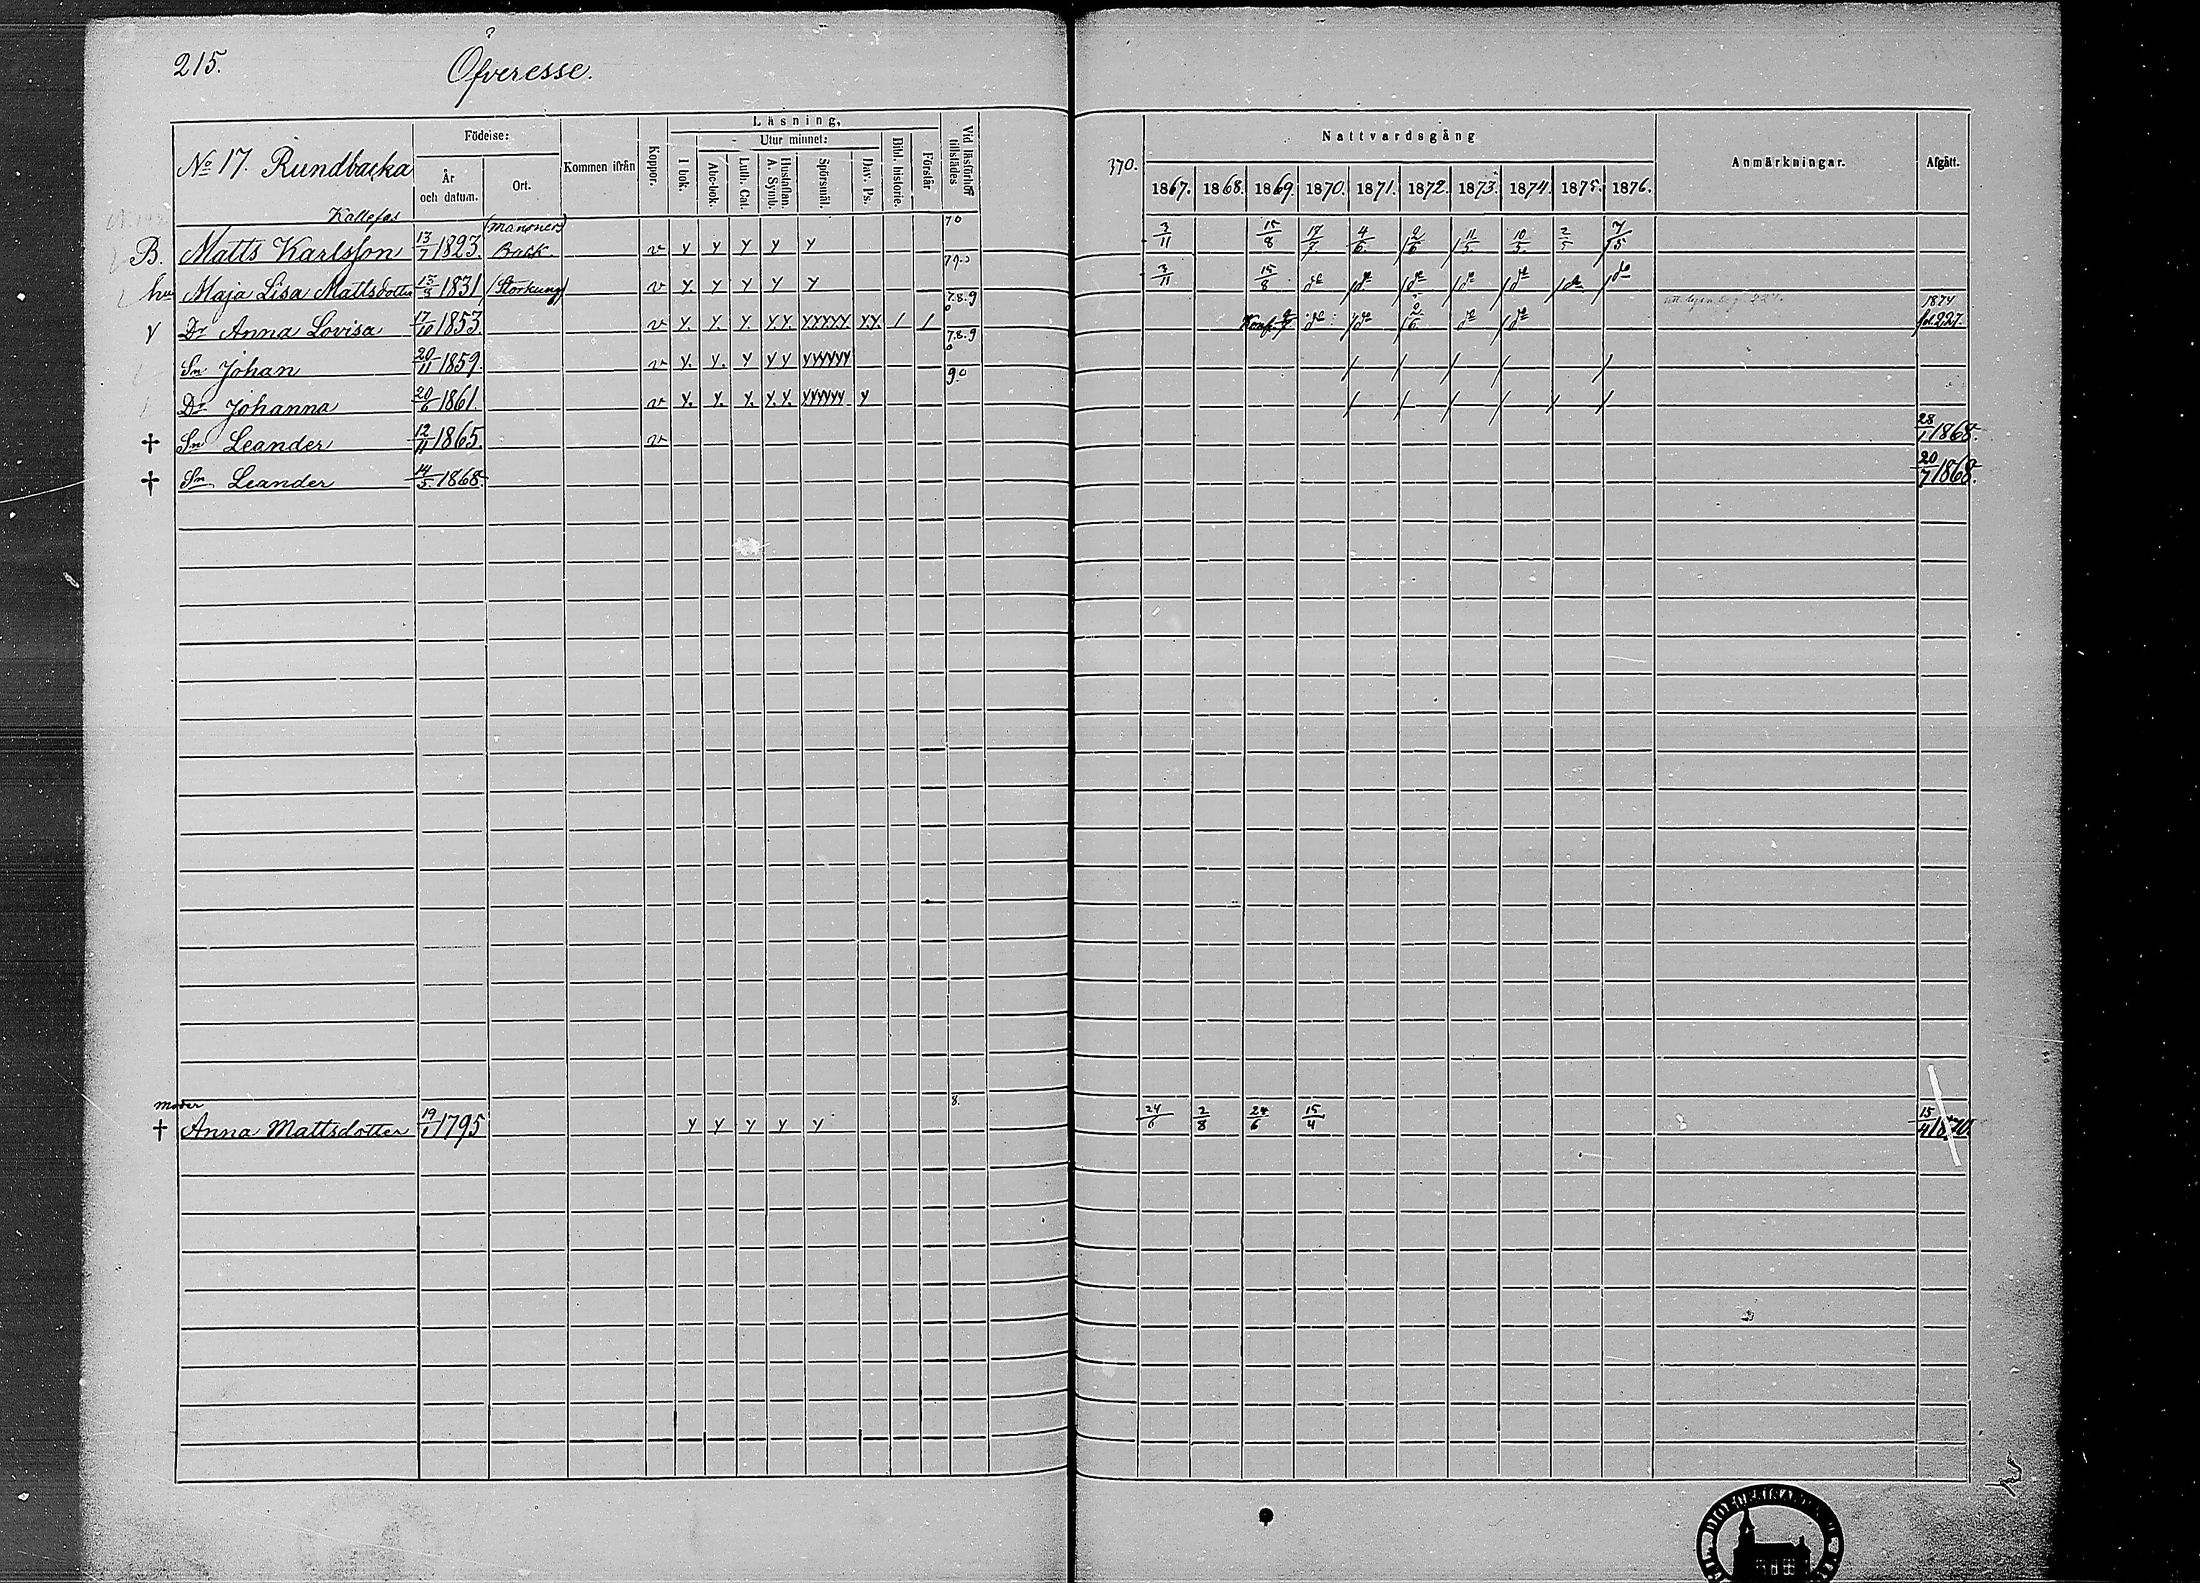 215.
Öfveresse.
Nº 17. Rundbacka
Födelse:
År och datum.
Ort.
Kommen ifrån
Koppor.
Läsning,
I bok.
Utur minnet:
Abc-bok.
Luth. Cat.
Hustaflan. A. Symb.
Spörsmål.
Dav. Ps.
Bibl. historie.
Förstår
Vid läsförhör tillstädes
370.
Nattvardsgång
1867. 1868. 1869. 1870. 1871. 1872. 1873. 1874. 1875. 1876.
Anmärkningar.
Afgått.
Kallefas (Mansner) 70
B. Matts Karlsson 13/7 1823. Back v y y y y y 3/11 15/8 17/7 4/6 2/6 11/5 10/5 2/5 7/5
hu Maja Lisa Mattsdotter 15/3 1831 (Storkung) v y y y y y 3/11 15/8 do do do do do do do
7.8.9
Y Dr Anna Lovisa 17/10 1853 v y. y. y. y.y. yyyyy yy. 1 1 Konf. do do 2/6 do do 1874 fol. 227.
7.8.9
Sn Johan 20/11 1859. v y. y. y y y. yyyyyy / / / / /
9.0
Dr Johanna 20/6 1861. v y. y. y. y.y. yyyyyy y / / / / / /
† Sn Leander 12/11 1865. v 28/1 1868.
† Sn Leander 14/5 1868. 20/7 1868.
moder 8.
† Anna Mattsdotter 19/1 1795 y y y y y 24/6 2/8 24/6 15/4 15/4 1870.